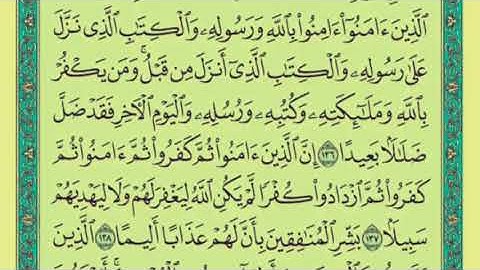 ٱلَّذِينَ ءَامَنُوٓا۟ ءَامِنُوا۟ بِٱللَّهِ وَرَسُولِهِۦ وَٱلْكِتَٰبِ ٱلَّذِى نَزَّلَ
عَلَىٰ رَسُولِهِۦ وَٱلْكِتَٰبِ ٱلَّذِىٓ أَنزَلَ مِن قَبْلُ ۚ وَمَن يَكْفُرْ
بِٱللَّهِ وَمَلَٰٓئِكَتِهِۦ وَكُتُبِهِۦ وَرُسُلِهِۦ وَٱلْيَوْمِ ٱلْءَاخِرِ فَقَدْ ضَلَّ
ضَلَٰلًۢا بَعِيدًا ١٣٦ إِنَّ ٱلَّذِينَ ءَامَنُوا۟ ثُمَّ كَفَرُوا۟ ثُمَّ ءَامَنُوا۟ ثُمَّ
كَفَرُوا۟ ثُمَّ ٱزْدَادُوا۟ كُفْرًا لَّمْ يَكُنِ ٱللَّهُ لِيَغْفِرَ لَهُمْ وَلَا لِيَهْدِيَهُمْ
سَبِيلًۢا ١٣٧ بَشِّرِ ٱلْمُنَٰفِقِينَ بِأَنَّ لَهُمْ عَذَابًا أَلِيمًا ١٣٨ ٱلَّذِينَ